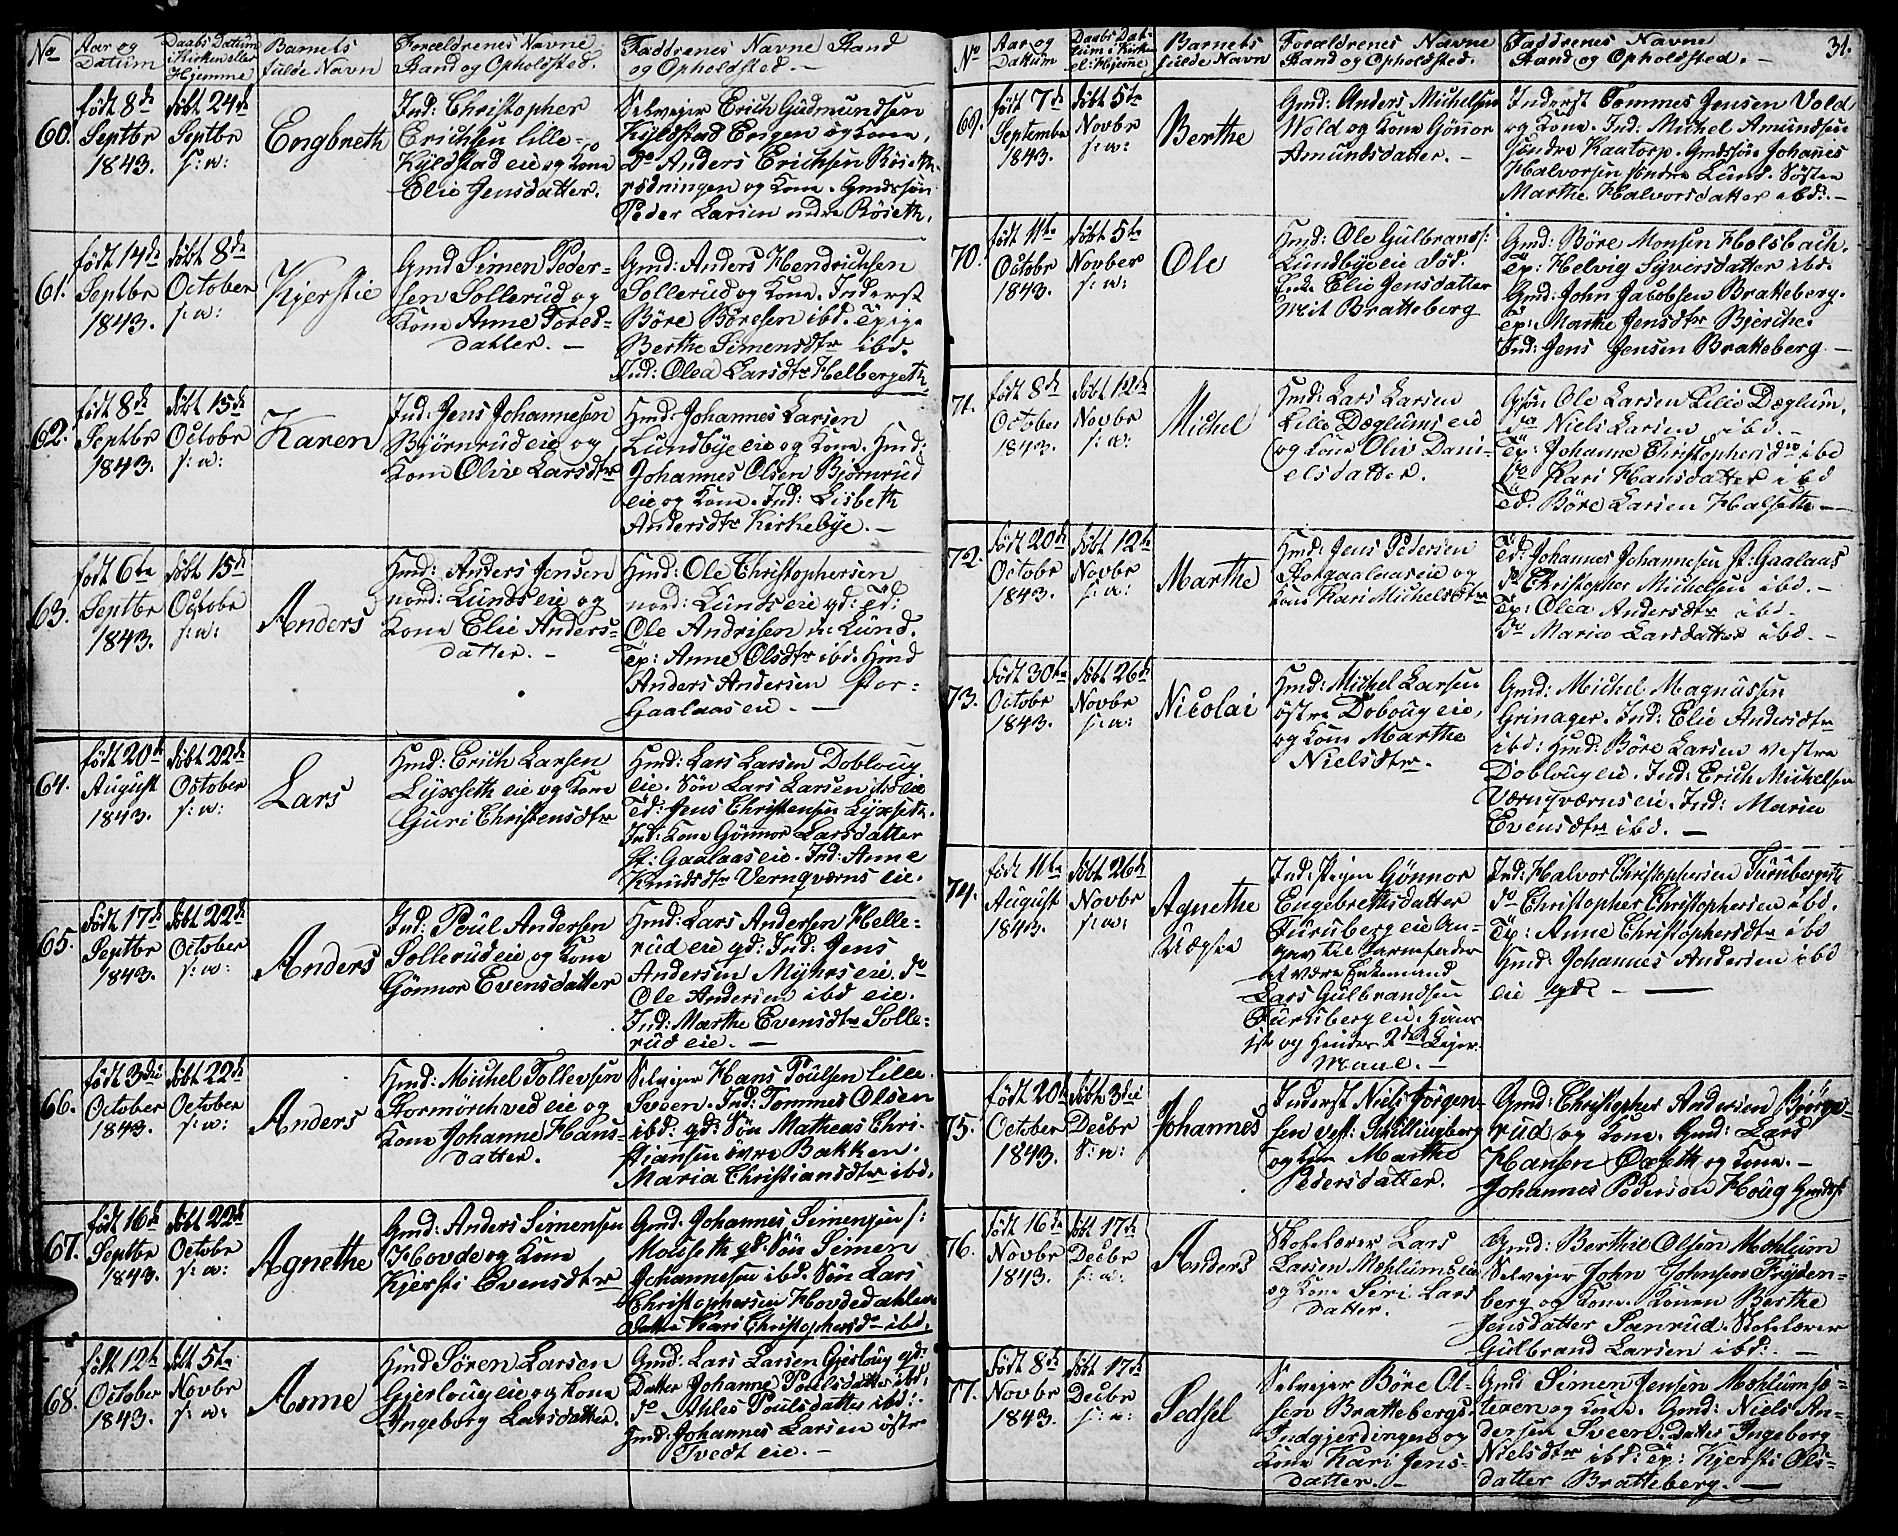 No
Aar og
Datum
Daabs Datum
i Kirken eller
Hjemme
Barnets
fulde Navn
Forældrenes Navne
Stand og Opholdsted.
Faddrenes Navne Stand
og Opholdsted. —
60.
født 8de
Septbr
1843.
døbt 24de
Septbr
s: a:
Engbreth
Ind: Christopher
Erichsen lille
Kyldstad eie og Kone
Elie Jensdatter.
Selveier Erich Gudmundsen
Kyldstad Erigen og Kone,
Do Anders Erichsen
rødningen og Kone. Gmdssøn
Peder Larsen nedre Røseth.
61.
født 14de
Septbr
1843.
døbt 8de
October
s: a:
Kjerstie
Gmd Simen Peder-
sen Sollerud og
Kone Anne Tores-
datter. —
Gmd: Anders Hendrichsen
Sollerud og Kone. Inderst
Böre Böresen ibd. Tpige
Berthe Simensdtr ibd.
Ind: Olea Larsdtr Helbergeth.
62.
født 8de
Septbr
1843.
døbt 15de
Octobr
s: a:
Karen
Ind: Jens Johannesen
Bjørnrud eie og
Kone Oliv Larsdtr
Hmd: Johannes Larsen
Lundbye eie og Kone. Hmd:
Johannes Olsen Bjørnrud
eie og Kone. Ind: Lisbeth
Andersdtr Kirkebye. —
63.
født 6te
Septbr
1843.
døbt 15de
Octobr
s: a:
Anders
Hmd: Anders Jensen
nord: Lunds eie og
Kone Elie Anders-
datter. —
Hmd: Ole Christophersen
nord: Lunds eie gd: Td:
Ole Andrisen n: Lund.
Tp: Anne Olsdtr ibd. Hmd
Anders Andersen Stor-
Gaalaas eie. —
64.
født 20de
August
1843.
døbt 22de
October
s: a:
Lars
Hmd: Erich Larsen
Lyxseth eie og Kone
Guri Christensdtr
Hmd: Lars Larsen Dobloug
eie. Søn Lars Larsen
Td: Jens Christensen Lyxseth.
Ind: Kone Gönnor Larsdatter
St: Gaalaas eie. Ind: Anne
Knudsdtr Vernqværns eie.
65.
født 17de
Septbr
1843.
døbt 22de
October
s: a:
Anders
Ind: Poul Andersen
Sollerud eie og Kone
Gönnor Evensdatter
Hmd: Lars Andersen Helle-
rud eie gd: Ind: Jens
Andersen Myhrs eie. Do
Ole Andersen ibd eie.
Ind: Marthe Evensdtr Solle-
rud eie. —
66.
født 3die
October
1843.
døbt 22de
October
s: a:
Anders
Hmd: Michel Tollevsen
Stormörchved eie og
Kone Johanne Hans-
datter.
Selveier Hans Poulsen lille
Sveen. Ind: Tommes Olsen
ibd: gd: Søn Matheas Chri-
stiansen övre Bakken.
Maria Christiansdtr ibd.
67.
født 16de
Septbr
1843.
døbt 22de
Octobr
s: a:
Agnethe
Gmd: Anders Simensen
Hovde og Kone
Kjersti Evensdtr
Gmd. Johannes Simensen s:
Mouseth gd. Søn Simen
Johannesen ibd. Søn Lars
Christophersen Hovdedahlen
Datter Kari Christophersdr ibd.
68.
født 12te
October
1843.
døbt 5te
Novbr
s: a:
Anne
Hmd Søren Larsen
Gjerloug eie og Kone
Ingeborg Larsdatter.
Gmd: Lars Larsen Gjerloug gd:
Datter Johanne Poulsdatter ibd:
Do Ahles Poulsdatter ibd:
Hmd: Johannes Larsen østre
Tvedt eie. —
31.
No
Aar og
Datum
Daabs Da-
tum i Kirke
el: Hjeme
Barnets
fulde Navn
Forældrenes Navne
Stand og Opholdsted.
Faddrenes Navne
Stand og Opholdsted. —
69.
født 7de
Septembr
1843.
døbt 5te
Novbr
s: a:
Berthe
Gmd: Anders Michelsen
Wold og Kone Gönnor
Amundsdatter. —
Inderst Tommes Jensen Vold
og Kone. Ind: Michel Amundsen
søndre Kantorp. Gmdssøn Johanes
Halvorsen søndre Lund. Søster
Marthe Halvorsdatter ibd: —
70.
født 11te
Octobr
1843.
døbt 5te
Novber
s: a:
Ole
Hmd: Ole Gulbrands:
Lundbye eie død:
Enke Elie Jensdatter
Bratteberg
Gmd: Böre Monsen Holsbach.
Tp: Helvig Syversdatter ibd.
Gmd: John Jacobsen Bratteberg.
Tp: Marthe Jensdtr Bjerche.
Ind: Jens Jensen Bratteberg —
71.
født 8de
October
1843.
døbt 12te
Novbr
s: a:
Michel
Hmd: Lars Larsen
Lille Dæglums eie
og Kone Oliv Dani-
elsdatter.
Gsøn Ole Larsen Lille Dæglum.
Do Niels Larsen ibd. —
Tp: Johanne Christophersdtr ibd
Do Kari Hansdatter ibd
Td: Böre Larsen Halseth —
72.
født 20de
Octobr
1843.
døbt 12te
Novbr
s: a:
Marthe
Hmd: Jens Pedersen
Storgaalaas eie og
Kone Kari Michelsdtr
Td: Johannes Johannesen St: Gaalaas
Do Christopher Michelsen ibd. —
Tp: Olea Andersdtr ibd.
Do Marie Larsdatter ibd. —
73.
født 30te
Octobr
1843.
døbt 26de
Novbr
s: a:
Nicolai
Hmd: Michel Larsen
östre Doboug eie,
og Kone Marthe
Nielsdtr.
Gmd: Michel Magnussen
Grinager. Ind: Elie Andersdtr
ibd: Hmd: Böre Larsen vestre
Dobloug eie. Ind: Erich Michelsen
Værnqværns eie. Ind: Maria
Evensdtr ibd. —
74.
født 11te
August
1843.
døbt 26de
Novbr
s: a:
Agnethe
Uægte
Ind: Pigen Gönnor
Engebrettsdatter
Furuberg eie An-
gav til Barnefader
at være Enkemand
Lars Gulbrandsen
Furuberg eie. Hans
1ste og Hendes 2det Lejer-
maal. —
Ind: Halvor Christophersen Furubergeie
do Christopher Christophersen ibd.
Tp: Anne Christophersdtr ibd
Hmd: Johannes Andersen ibd
eie gd: — —
75.
født 20de
October
1843.
døbt 3die
Decbr
S: a:
Johannes
Inderst Niels Jørgen-
sen vest: Skillingberg
og Kone Marthe
Pedersdatter.
Gmd: Christopher Andersen Bjerge-
rud og Kone. Gmd: Lars
Hansen Oxseth og Kone. —
Johannes Pedersen Houg Gmds
76.
født 16de
Novbr
1843.
døbt 17de
Decbr
s: a:
Anders
Skolelærer Lars
Larsen Mæhlums eie
og Kone Siri Lars
datter.
Gmd: Berthie Olsen Mæhlum
Selveier John Johnsen Fryden-
berg og Kone. Konen Berthe
Jensdatter Sanrud. Skolelærer
Gulbrand Larsen ibd: —
77.
født 8de
Novbr
1843.
døbt 17de
Decbr
s: a:
Sedsel
Selveier Böre Ol-
sen Brattebergs
Indgjerdingen og
Kone Kari Jens-
datter. —
Gmd Simen Jensen Mæhlum sø-
teren og Kone. Gmd: Niels An-
dersen Sveen. datter Ingeborg
Nielsdtr ibd: Tp: Kjersti Ols-
datter Bratteberg. —